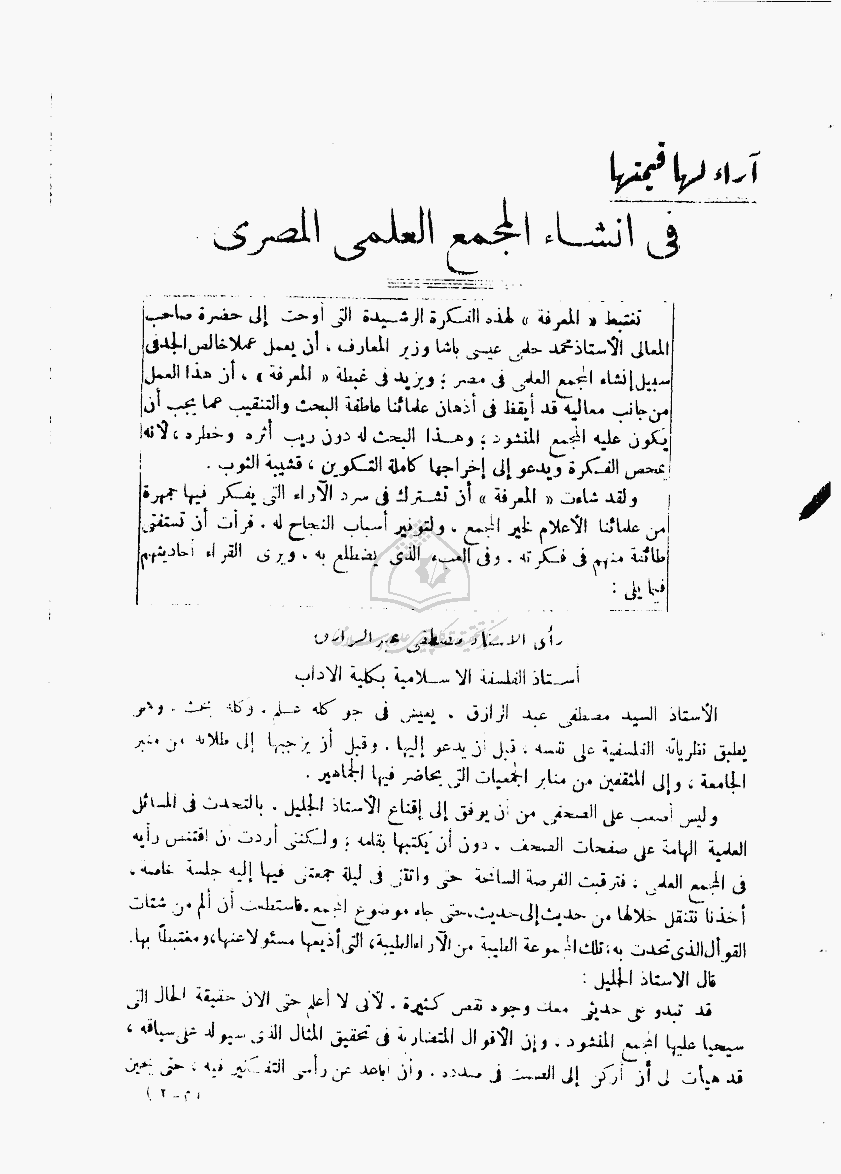 آراء لها قيمتها
فى انشاء المجمع العلمى المصرى
تغتبط « المعرفة » لهذه الفكرة الرشيدة التى أوحت إلى حضرة صاحب
المعالى الأستاذ محمد حلمى عيسى باشا وزير المعارف ، أن يعمل عملا خالص الجد فى
سبيل إنشاء المجمع العلمى فى مصر ؛ ويزيد فى غبطة « المعرفة » ، أن هذا العمل
من جانب معاليه قد أيقظ فى أذهان علمائنا عاطفة البحث والتنقيب عما يجب أن
يكون عليه المجمع المنشود ؛ وهذا البحث له دون ريب أثره وخطره ، لأنه
يمحص الفكرة ويدعو إلى إخراجها كاملة التكوين ، قشيبة الثوب .
ولقد شاءت « المعرفة » أن تشترك فى سرد الآراء التى يفكر فيها جمهرة
من علمائنا الأعلام لخير المجمع . ولتوفير أسباب النجاح له . فرأت أن تستفتى
طائفة منهم فى فكرته . وفى العبء الذى يضطلع به . ويرى القراء أحاديثهم
فيما يلى :
رأى الاستاذ مصطفى عبد الرازق
أستاذ الفلسفة الاسلامية بكلية الآداب
الأستاذ السيد مصطفى عبد الرازق . يعيش فى جو كله علم . وكله بحث . وهو
يطبق نظرياته الفلسفية على نفسه ، قبل أن يدعو إليها . وقبل أن يزجيها إلى طلابه من منبر
الجامعة ، وإلى المثقفين من منابر الجمعيات التى يحاضر فيها الجماهير .
وليس أصعب على الصحفى من أن يوفق إلى إقناع الأستاذ الجليل . بالتحدث فى المسائل
العلمية الهامة على صفحات الصحف . دون أن يكتبها بقلمه ؛ ولكننى أردت أن أقتنص رأيه
فى المجمع العلمى ، فترقبت الفرصة السانحة حتى واتتنى فى ليلة جمعتنى فيها إليه جلسة خاصة .
أخذنا نتنقل خلالها من حديث إلى حديث ، حتى جاء موضوع المجمع . فاستطعت أن ألم من شتات
القول الذى تحدث به ، تلك المجموعة الطيبة من الآراء الطيبة ، التى أذيعها مسئولا عنها ، ومغتبطاً بها .
قال الاستاذ الجليل :
قد تبدو فى حديثى معك وجوه نقص كثيرة . لأنى لا أعلم حتى الآن حقيقة الحال التى
سيحيا عليها المجمع المنشود . وإن الأقوال المتضاربة فى تحقيق المثال الذى سيولد على سياقه ،
قد هيأت لى أن أركن إلى الصمت فى صدده . وأن أباعد عن رأسى التفكير فيه ، حتى يحين
( م - ٢ )